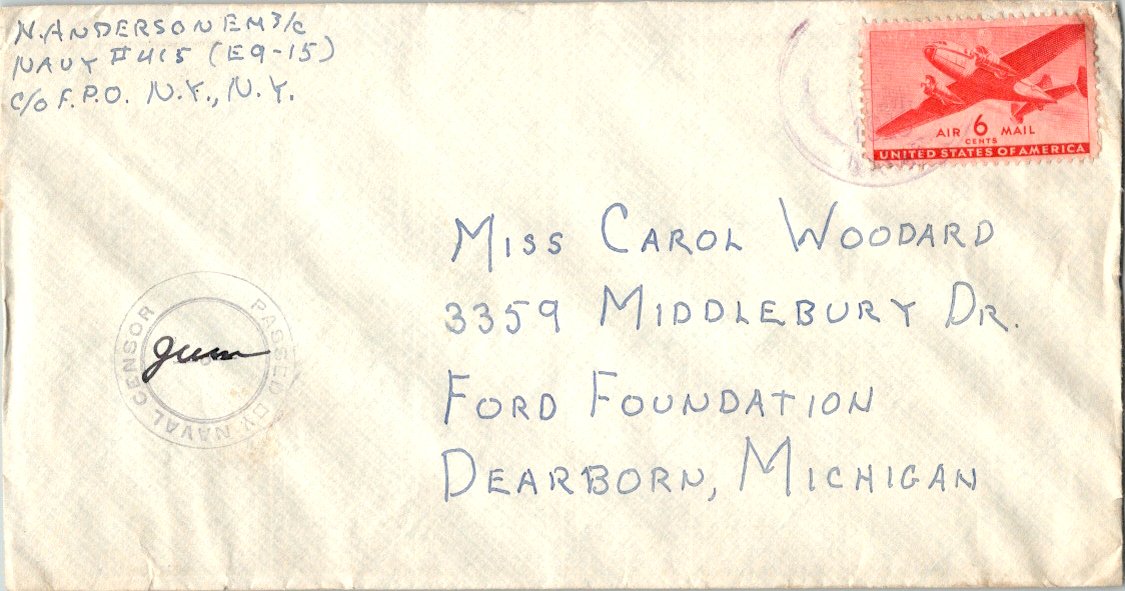 N. ANDERSON EM 3/c
NAVY #415 (E9-15)
C/O F.P.O. N.Y., N.Y.
AIR 6 MAIL
CENTS
UNITED STATES OF AMERICA
MISS CAROL WOODARD
3359 MIDDLEBURY DR.
FORD FOUNDATION
DEARBORN, MICHIGAN
PASSED BY NAVAL CENSOR